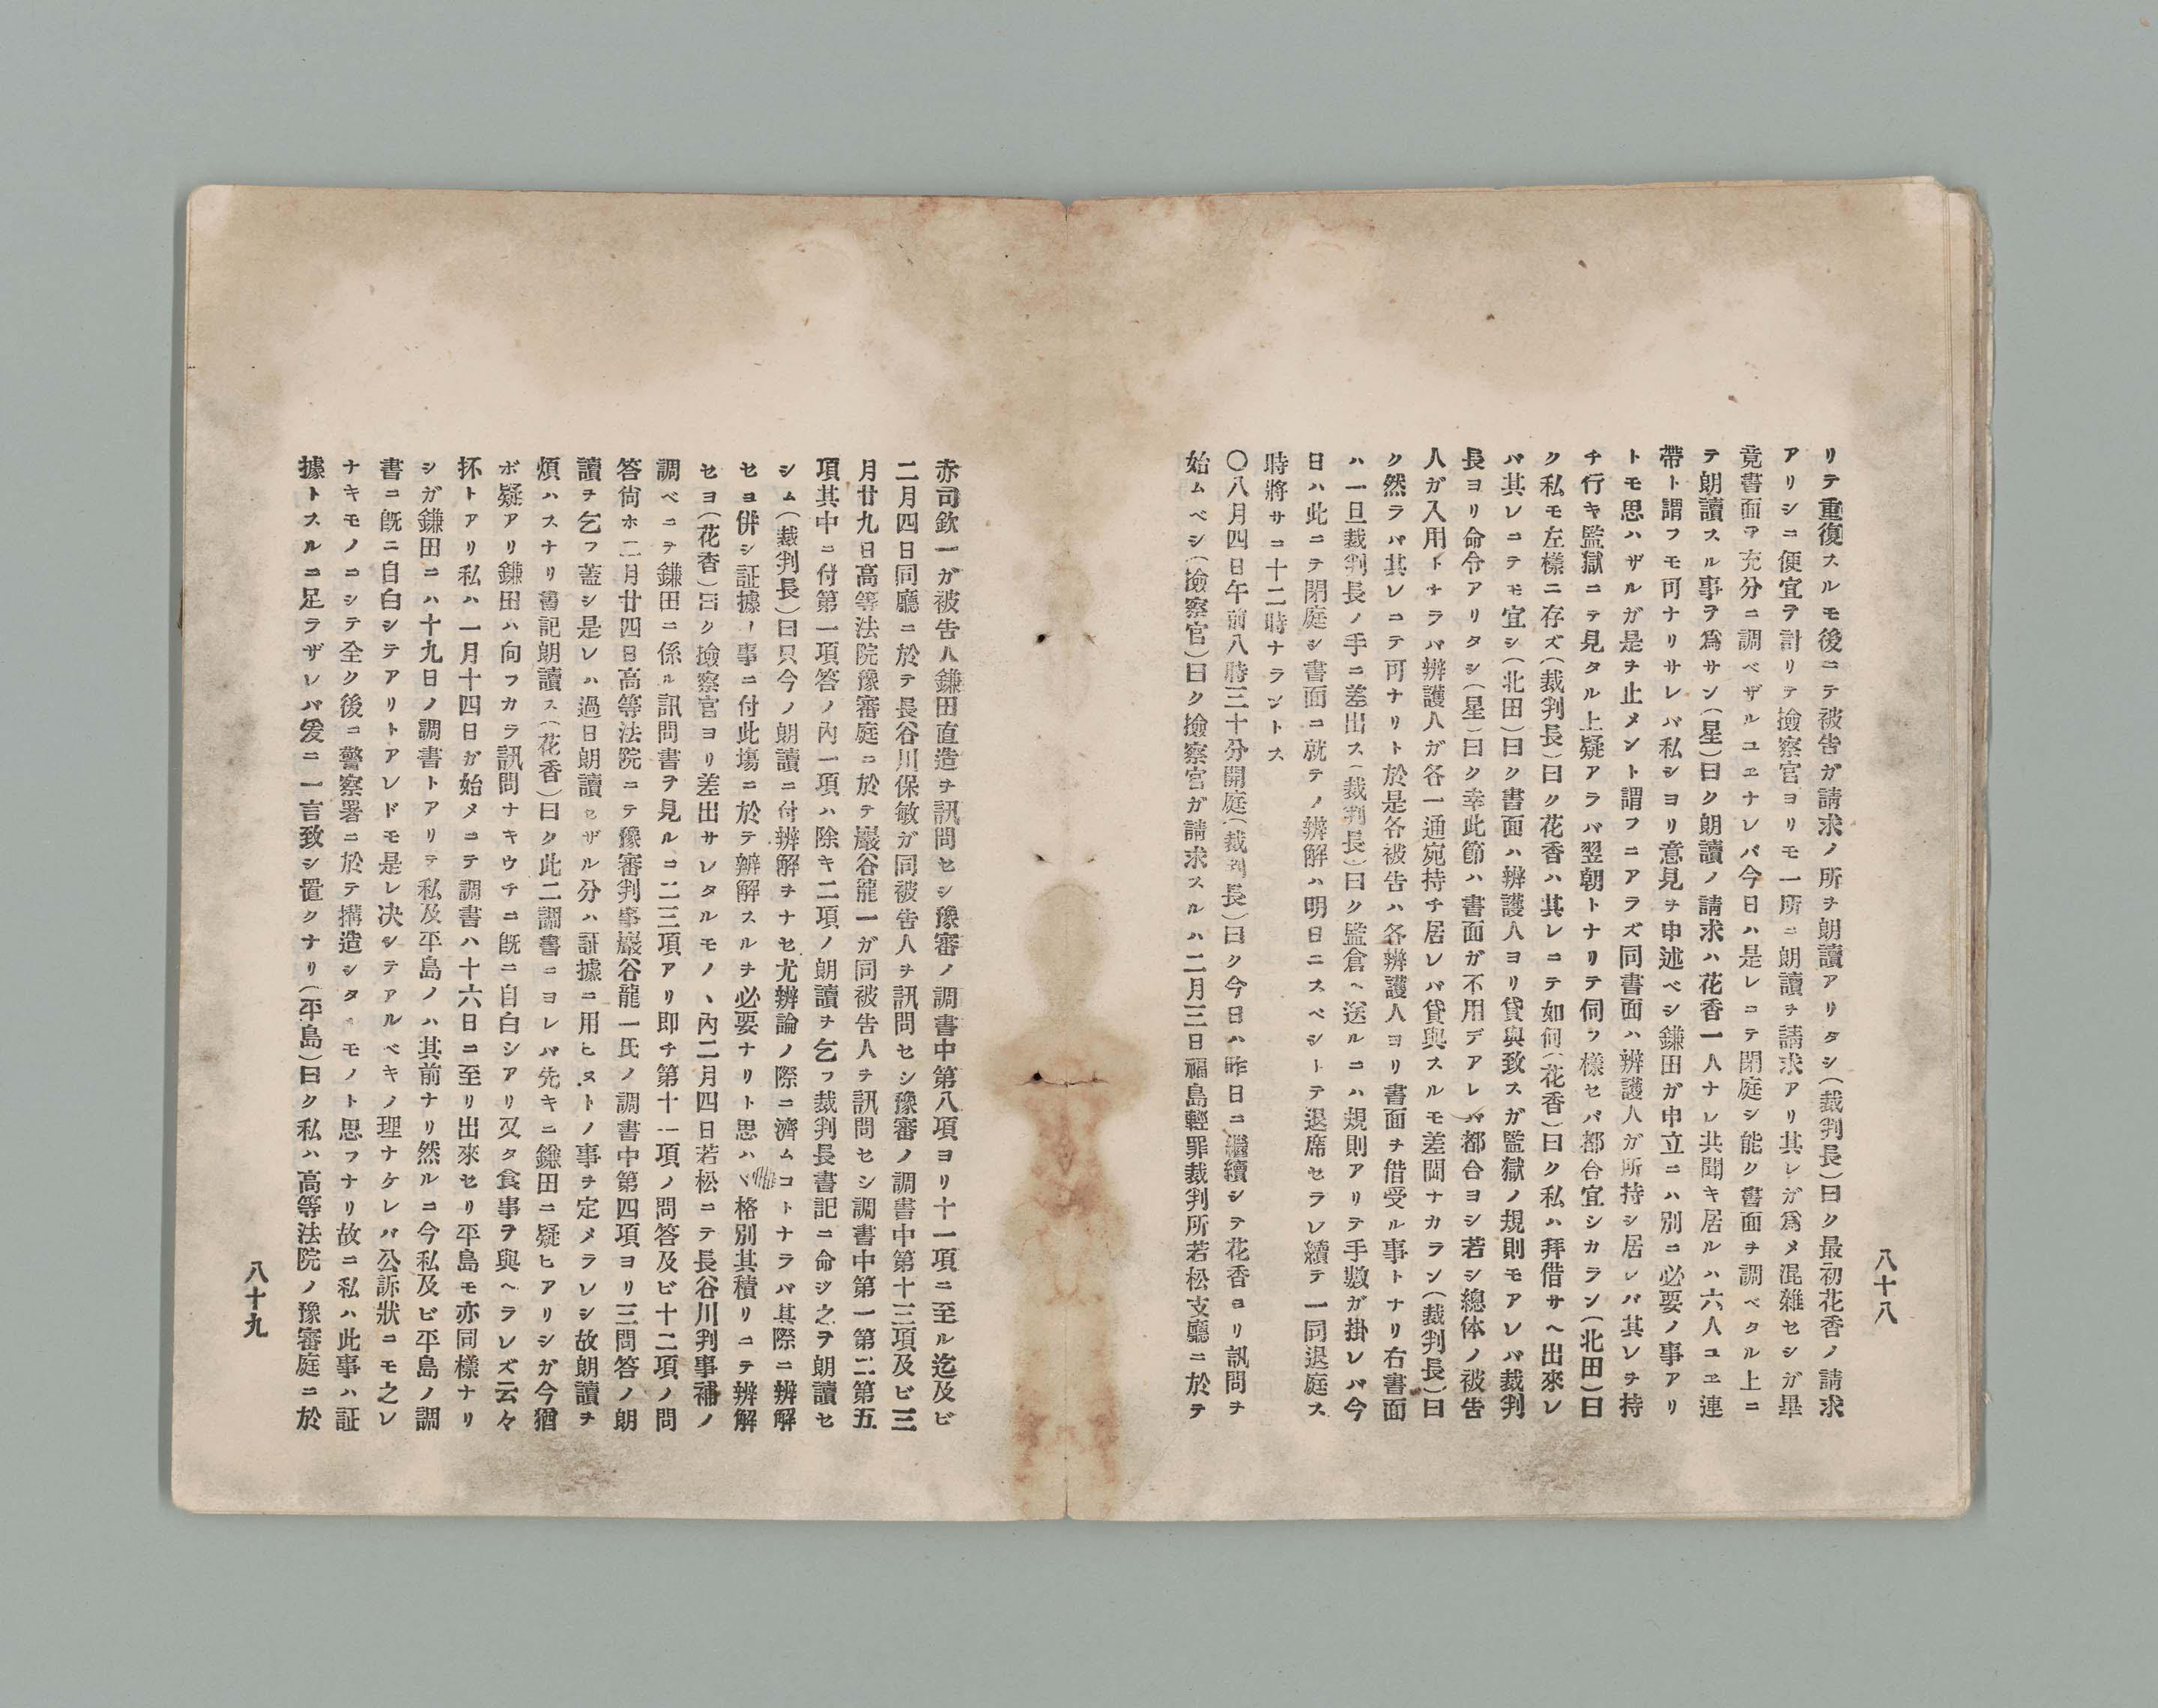 八十八
リテ重復スルモ後ニテ被告ガ請求ノ所ヲ朗讀アリタシ(裁判長)曰ク最初花香ノ請求
アリシコ便宜ヲ計リテ撿察官ヨリモ一所ニ朗讀ヲ請求アリ其レガ爲メ混雜セシガ畢
竟書面ヲ充分ニ調ベザルユヱナレバ今日ハ是レニテ閉庭シ能ク書面ヲ調ベタル上ニ
テ朗讀スル事ヲ爲サン(星)曰ク朗讀ノ請求ハ花香一人ナレ共聞キ居ルハ六人ユヱ連
帶ト謂フモ可ナリサレバ私シヨリ意見ヲ申述ベシ鎌田ガ申立ニハ別ニ必要ノ事アリ
トモ思ハザルガ是ヲ止メント謂フニアラズ同書面ハ辨護人ガ所持シ居レバ其レヲ持
チ行キ監獄ニテ見タル上疑アラバ翌朝トナリテ伺フ樣セバ都合宜シカラン(北田)曰
ク私モ左樣ニ存ズ(裁判長)曰ク花香ハ其レニテ如何(花香)曰ク私ハ拜借サヘ出來レ
バ其レニテモ宜シ(北田)曰ク書面ハ辨護人ヨリ貸與致スガ監獄ノ規則モアレバ裁判
長ヨリ命令アリタシ(星)曰ク幸此節ハ書面ガ不用デアレバ都合ヨシ若シ總体ノ被告
人ガ入用トナラバ辨護人ガ各一通宛持チ居レバ貸與スルモ差閊ナカラン(裁判長)曰
ク然ラバ其レニテ可ナリト於是各被告ハ各辨護人ヨリ書面ヲ借受ル事トナリ右書面
ハ一旦裁判長ノ手ニ差出ス(裁判長)曰ク監倉ヘ送ルニハ規則アリテ手數ガ掛レバ今
日ハ此ニテ閉庭シ書面ニ就テノ辨解ハ明日ニスベシトテ退席セラレ續テ一同退庭ス
時將サニ十二時ナラントス
〇八月四日午前八時三十分開庭(裁判長)曰ク今日ハ昨日ニ繼續シテ花香ヨリ訊問ヲ
始ムベシ(撿察官)曰ク撿察官ガ請求スルハ二月三日福島輕罪裁判所若松支廳ニ於テ
赤司欽一ガ被告人鎌田直造ヲ訊問セシ豫審ノ調書中第八項ヨリ十一項ニ至ル迄及ビ
二月四日同廳ニ於テ長谷川保敏ガ同被告人ヲ訊問セシ豫審ノ調書中第十三項及ビ三
月廿九日高等法院豫審庭ニ於テ巖谷龍一ガ同被告人ヲ訊問セシ調書中第一第二第五
項其中ニ付第一項答ノ內一項ハ除キ二項ノ朗讀ヲ乞フ裁判長書記ニ命シ之ヲ朗讀セ
シム(裁判長)曰只今ノ朗讀ニ付辨解ヲナセ尤辨論ノ際ニ濟ムコトナラバ其際ニ辨解
セヨ併シ証據ノ事ニ付此塲ニ於テ辨解スルヲ必要ナリト思ハヾ格別其積リニテ辨解
セヨ(花香)曰ク撿察官ヨリ差出サレタルモノヽ內二月四日若松ニテ長谷川判事補ノ
調ベニテ鎌田ニ係ル訊問書ヲ見ルニ二三項アリ即チ第十一項ノ問答及ビ十二項ノ問
答尙ホ二月廿四日高等法院ニテ豫審判事巖谷龍一氏ノ調書中第四項ヨリ三問答ノ朗
讀ヲ乞フ蓋シ是レハ過日朗讀セザル分ハ証據ニ用ヒヌトノ事ヲ定メラレシ故朗讀ヲ
煩ハスナリ書記朗讀ス(花香)曰ク此二調書ニヨレバ先キニ鎌田ニ疑ヒアリシガ今猶
ボ疑アリ鎌田ハ向フカラ訊問ナキウチニ旣ニ自白シアリ又タ食事ヲ與ヘラレズ云々
抔トアリ私ハ一月十四日ガ始メニテ調書ハ十六日ニ至リ出來セリ平島モ亦同樣ナリ
シガ鎌田ニハ十九日ノ調書トアリテ私及平島ノハ其前ナリ然ルニ今私及ビ平島ノ調
書ニ旣ニ自白シテアリトアレドモ是レ决シテアルベキノ理ナケレバ公訴狀ニモ之レ
ナキモノニシテ全ク後ニ警察署ニ於テ搆造シタモノト思フナリ故ニ私ハ此事ハ証
據トスルニ足ラザレバ爰ニ一言致シ置クナリ(平島)曰ク私ハ高等法院ノ豫審庭ニ於
八十九